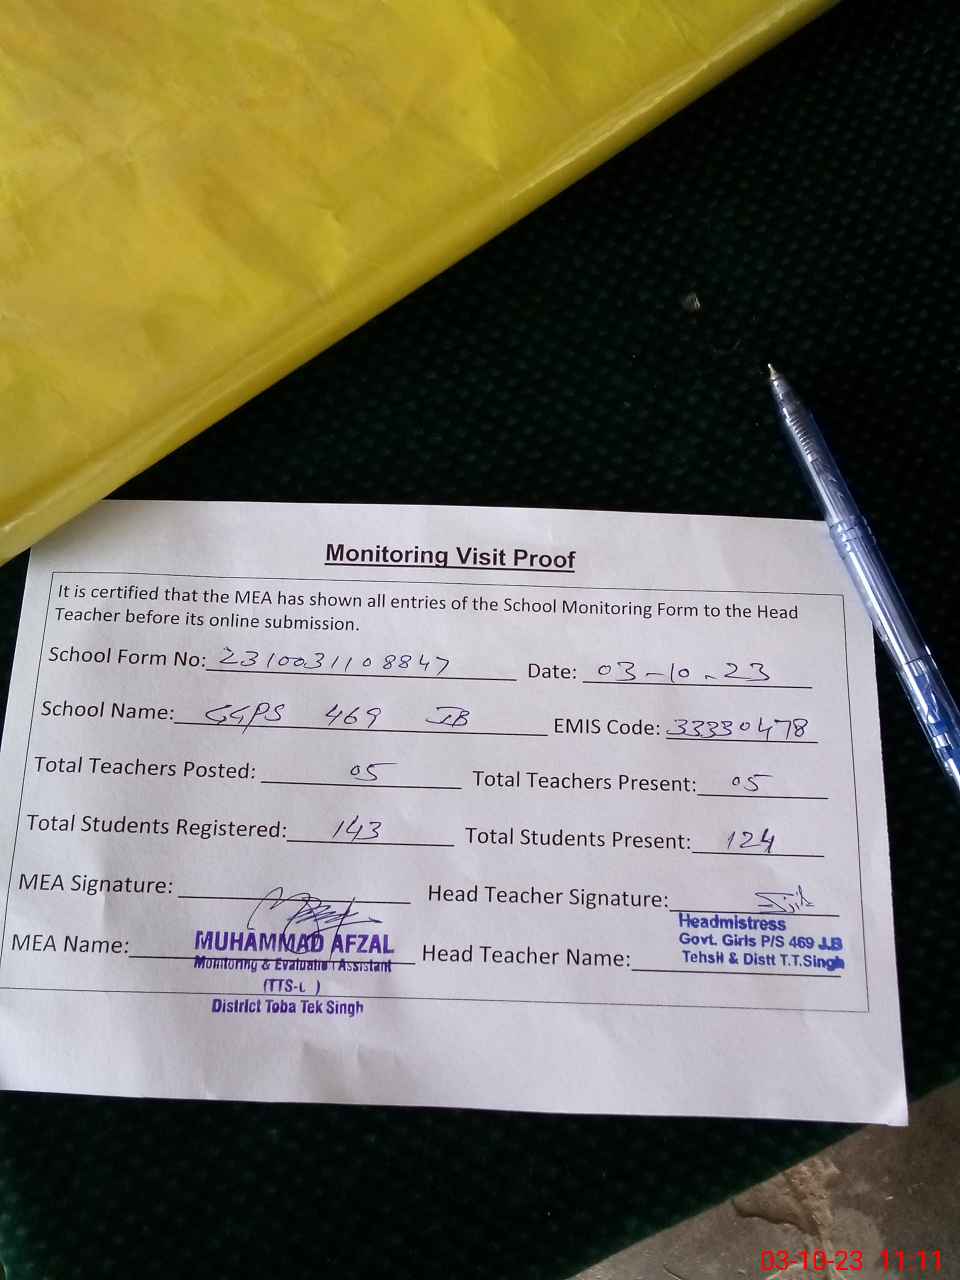 Monitoring Visit Proof
It is certified that the MEA has shown all entries of the School Monitoring Form to the Head
Teacher before its online submission.
School Form No: 2310031108847 Date: 03-10-23
School Name: GGPS 469 JB EMIS Code: 33330478
Total Teachers Posted: 05 Total Teachers Present: 05
Total Students Registered: 143 Total Students Present: 124
MEA Signature: Head Teacher Signature:
MEA Name: Head Teacher Name:
MUHAMMAD AFZAL
Monitoring & Evaluation Assistant
District Toba Tek Singh
Headmistress
Govt. Girls P/S 469 J.B
Tehsil & Distt T.T.Singh
03-10-23 11:11